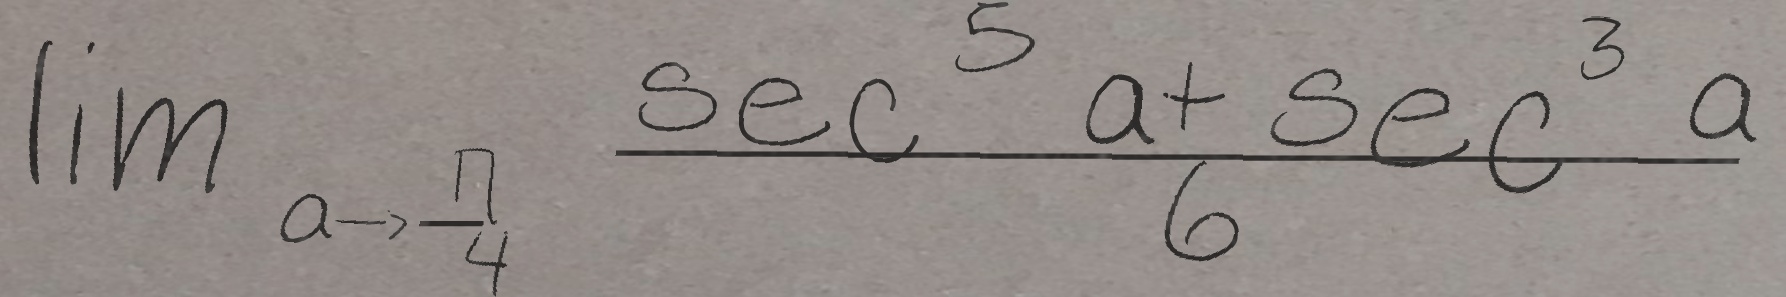 \lim_{a \to \frac{\pi}{4}} \frac{\sec^5 a + \sec^3 a}{6}